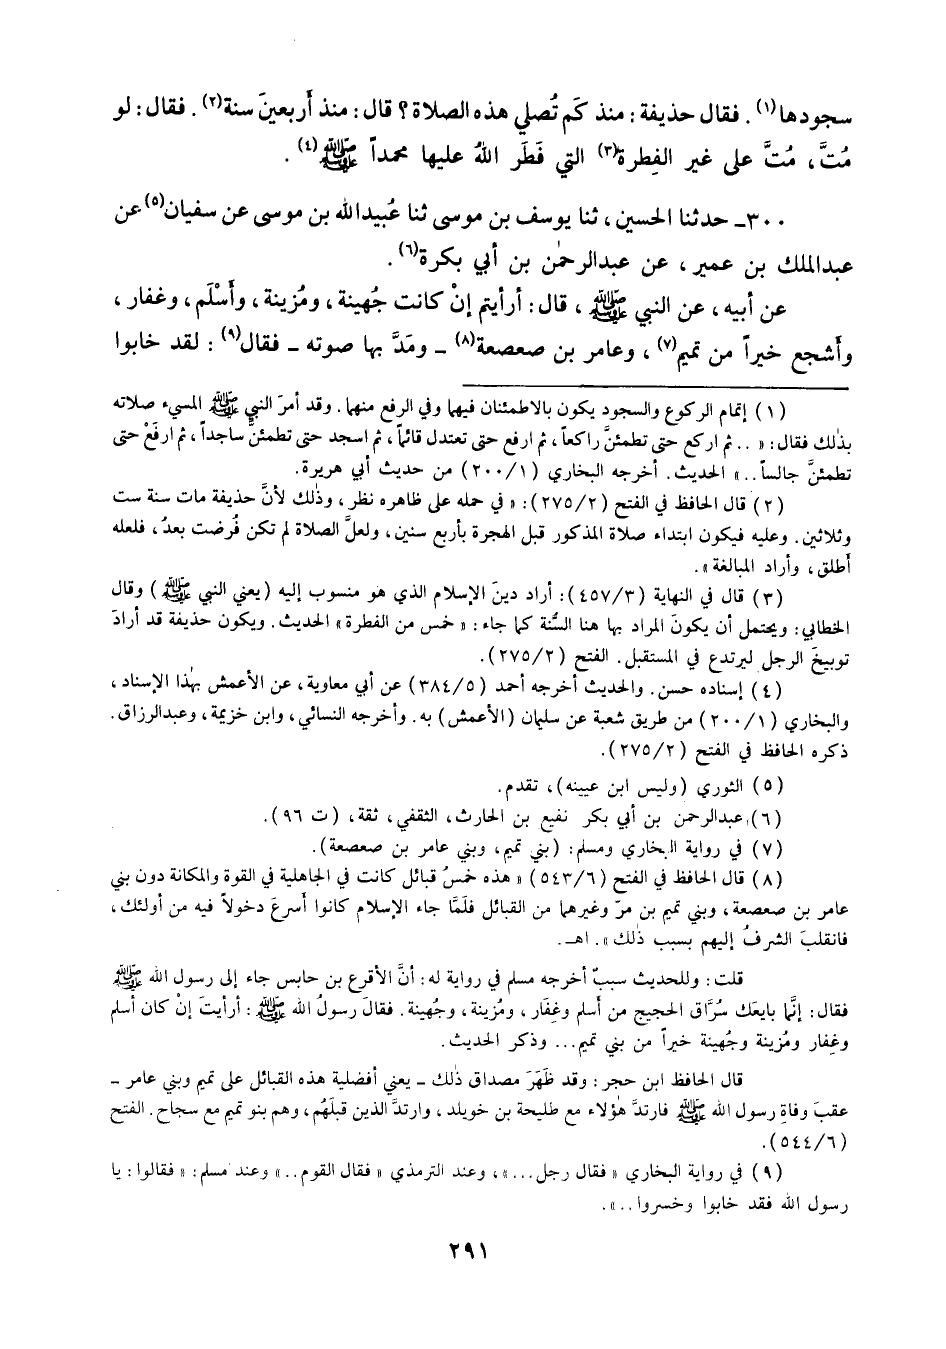 سجودها(١). فقال حذيفة: منذ كَم تُصلي هذه الصلاة؟ قال: منذ أَربعينَ سنة(٢). فقال: لو
مُتَّ، مُتَّ على غير الفِطرة(٣) التي فَطَر اللهُ عليها محمداً ﷺ(٤).
٣٠٠ـ حدثنا الحسين، ثنا يوسف بن موسى ثنا عُبيدالله بن موسى عن سفيان(٥) عن
عبدالملك بن عمير، عن عبدالرحمٰن بن أبي بكرة(٦).
عن أبيه، عن النبي ﷺ، قال: أرأيتم إنْ كانت جُهينة، ومُزينة، وأَسْلَم، وغفار،
وأشجع خيراً من تميم(٧)، وعامر بن صعصعة(٨) ـ ومَدَّ بها صوته ـ فقال(٩): لقد خابوا
(١) إتمام الركوع والسجود يكون بالاطمئنان فيهما وفي الرفع منهما. وقد أمرَ النبي ﷺ المسيء صلاته
بذٰلك فقال: «.. ثم اركع حتى تطمئنَّ راكعاً، ثم ارفع حتى تعتدل قائماً، ثم اسجد حتى تطمئنَّ ساجداً، ثم ارفَعْ حتى
تطمئنَّ جالساً..» الحديث. أخرجه البخاري (٢٠٠/١) من حديث أبي هريرة.
(٢) قال الحافظ في الفتح (٢٧٥/٢): «في حمله على ظاهره نظر، وذٰلك لأنَّ حذيفة مات سنة ست
وثلاثين. وعليه فيكون ابتداء صلاة المذكور قبل الهجرة بأربع سنين، ولعلَّ الصلاة لم تكن فُرضت بعدُ، فلعله
أطلق، وأراد المبالغة».
(٣) قال في النهاية (٤٥٧/٣): أراد دينَ الإسلام الذي هو منسوب إليه (يعني النبي ﷺ) وقال
الخطابي: ويحتمل أن يكونَ المراد بها هنا السُّنة كما جاء: «خمس من الفطرة» الحديث. ويكون حذيفة قد أرادَ
توبيخَ الرجل ليرتدع في المستقبل. الفتح (٢٧٥/٢).
(٤) إسناده حسن. والحديث أخرجه أحمد (٣٨٤/٥) عن أبي معاوية، عن الأعمش بهٰذا الإسناد،
والبخاري (٢٠٠/١) من طريق شعبة عن سليمان (الأعمش) به. وأخرجه النسائي، وابن خزيمة، وعبدالرزاق.
ذكره الحافظ في الفتح (٢٧٥/٢).
(٥) الثوري (وليس ابن عيينه)، تقدم.
(٦) عبدالرحمن بن أبي بكر نفيع بن الحارث، الثقفي، ثقة، (ت ٩٦).
(٧) في رواية البخاري ومسلم: (بني تميم، وبني عامر بن صعصعة).
(٨) قال الحافظ في الفتح (٥٤٣/٦) «هذه خمسُ قبائل كانت في الجاهلية في القوة والمكانة دون بني
عامر بن صعصعة، وبني تميم بن مرّ وغيرهما من القبائل فلَمَّا جاء الإسلام كانوا أسرعَ دخولاً فيه من أولئك،
فانقلبَ الشرفُ إليهم بسبب ذٰلك». اهـ.
قلت: وللحديث سببٌ أخرجه مسلم في رواية له: أنَّ الأقرع بن حابس جاء إلى رسول الله ﷺ
فقال: إنَّما بايعَك سُرَّاق الحجيج من أسلم وغِفَار، ومُزينة، وجُهينة. فقالَ رسولُ الله ﷺ: أرأيتَ إنْ كان أسلم
وغِفار ومُزينة وجُهينة خيراً من بني تميم... وذكر الحديث.
قال الحافظ ابن حجر: وقد ظَهَرَ مصداق ذٰلك ـ يعني أفضلية هذه القبائل على تميم وبني عامر ـ
عقبَ وفاةِ رسول الله ﷺ فارتدَّ هٰؤلاء مع طليحة بن خويلد، وارتدَّ الذين قبلَهُم، وهم بنو تميم مع سجاح. الفتح
(٥٤٤/٦).
(٩) في رواية البخاري «فقال رجل...»، وعند الترمذي «فقال القوم..» وعند مسلم: «فقالوا: يا
رسول الله فقد خابوا وخسروا..».
٢٩١